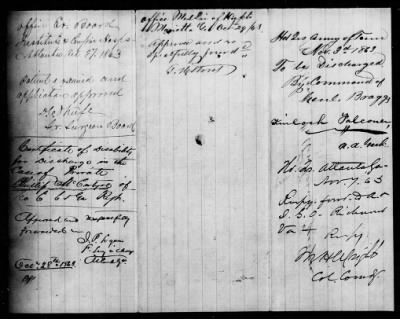 Office Ex. Board
Institute & Empire Hosps
Atlanta Oct 27. 1863
Patient examined and
application approved
Sr. Surgeon Board
Certificate of disability
for discharge in the
Case of Private
Phillip McCabe of
Co C 65 Ga Regt.
Approved and respectfully
forwarded
Surg in Chge
Oct 28th 1863
Office Med Dir of Hspts
Marietta Ga Oct 29/63
Approved and re
spectfully forwd
Hd Qrs Army of Tenn
Nov. 3rd 1863
To be Discharged
By Command of
Genl Bragg
Kinloch Falconer
A.A. Genl.
Hd. Qrs. Atlanta Ga
Nov. 7. 63
Respy. forwd
Richmond
Va
Respy.
M H Wright
Col. Comdg.